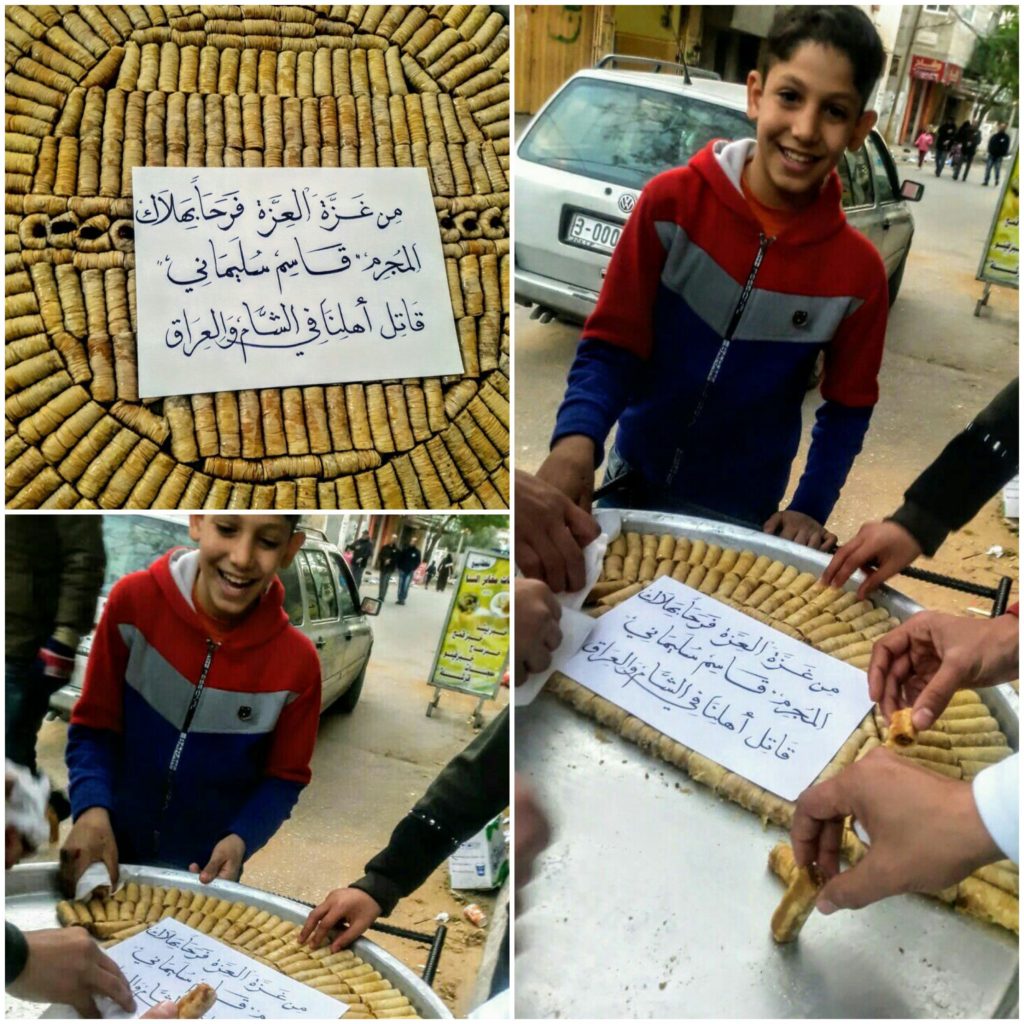 مِن غَزَّةَ الْعِزَّةِ فَرَحَاً بِهَلَاكِ
المُجرِم "قَاسِم سُلَيمَاني"
قَاتِل أَهلِنَا فِي الشَّام وَالعِرَاق
3-000
مِن غَزَّةَ الْعِزَّةِ فَرَحَاً بِهَلَاكِ
المُجرِم.. قَاسِم سُلَيمَاني
قَاتِل أَهلِنَا فِي الشَّام وَالعِرَاق
مِن غَزَّةَ الْعِزَّةِ فَرَحَاً بِهَلَاكِ
قَاسِم سُلَيمَاني